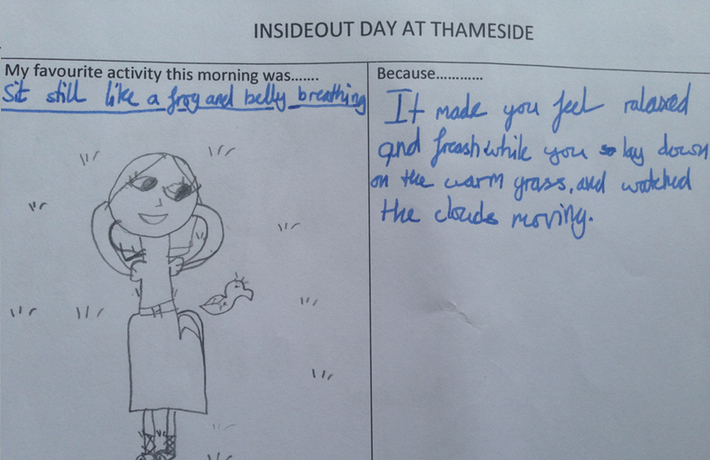 INSIDEOUT DAY AT THAMESIDE
My favourite activity this morning was.......
Sit still like a frog and belly breathing
Because............
It made you feel ralaxed
and freash while you so lay down
on the warm grass, and watched
the clouds moving.